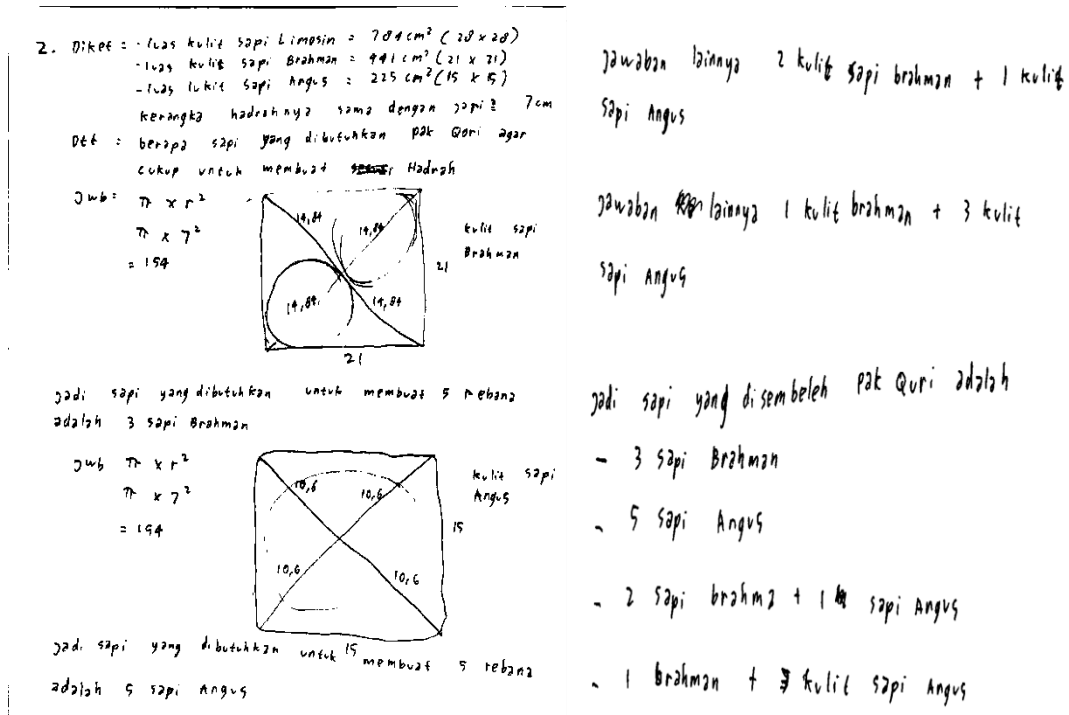 2. Diket = - luas kulit sapi Limosin = 784 cm² (28 x 28)
- luas kulit sapi Brahman = 441 cm² (21 x 21)
- luas lukit sapi Angus = 225 cm² (15 x 15)
kerangka hadrahnya sama dengan jari² 7cm
Dit = berapa sapi yang dibutuhkan pak Qori agar
cukup untuk membuat Hadrah
Jwb = π x r²
π x 7²
= 154
14,84
14,84
14,84
14,84
21
21
kulit sapi
Brahman
Jadi sapi yang dibutuhkan untuk membuat 5 rebana
adalah 3 sapi Brahman
Jwb π x r²
π x 7²
= 154
10,6
10,6
10,6
10,6
15
15
kulit sapi
Angus
Jadi sapi yang dibutuhkan untuk membuat 5 rebana
adalah 5 sapi Angus
Jawaban lainnya 2 kulit sapi brahman + 1 kulit
sapi Angus
Jawaban lainnya 1 kulit brahman + 3 kulit
sapi Angus
Jadi sapi yang disembeleh pak Quri adalah
- 3 sapi Brahman
- 5 sapi Angus
- 2 sapi brahma + 1 sapi Angus
- 1 brahman + 3 kulit sapi Angus